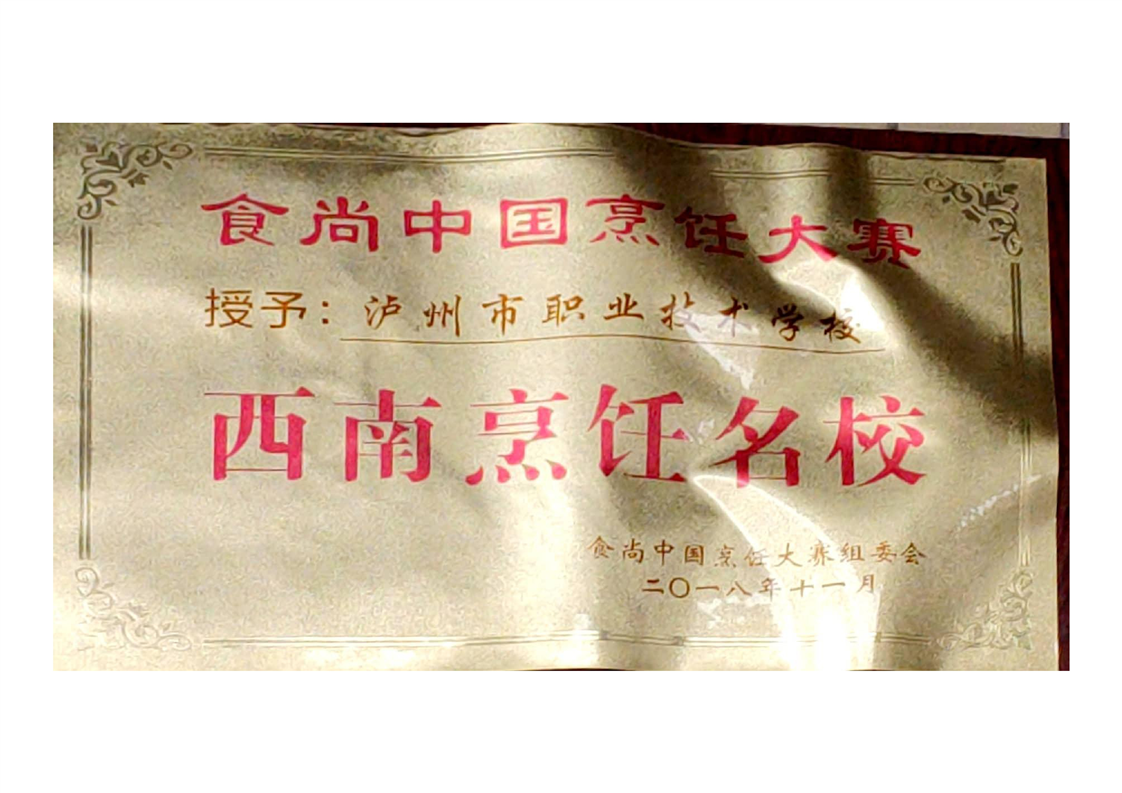 食尚中国烹饪大赛
授予：泸州市职业技术学校
西南烹饪名校
食尚中国烹饪大赛组委会
二〇一八年十一月